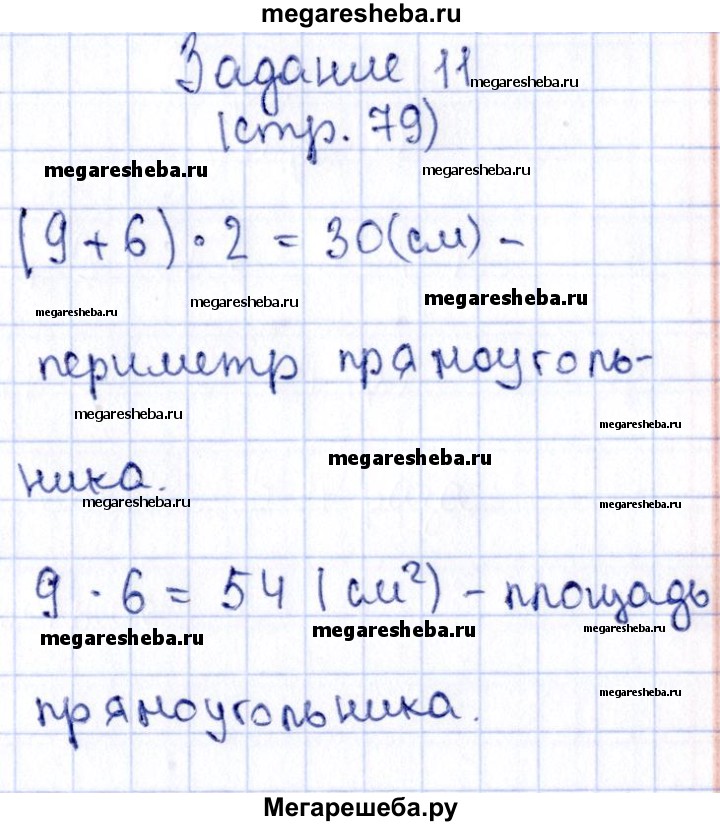 megaresheba.ru
Задание 11 megaresheba.ru
(стр. 79)
megaresheba.ru megaresheba.ru
(9 + 6) · 2 = 30 (см) –
megaresheba.ru megaresheba.ru megaresheba.ru
периметр прямоуголь-
megaresheba.ru megaresheba.ru
ника. megaresheba.ru
megaresheba.ru megaresheba.ru
9 · 6 = 54 (см²) – площадь
megaresheba.ru megaresheba.ru megaresheba.ru
прямоугольника. megaresheba.ru
Мегарешеба.ру